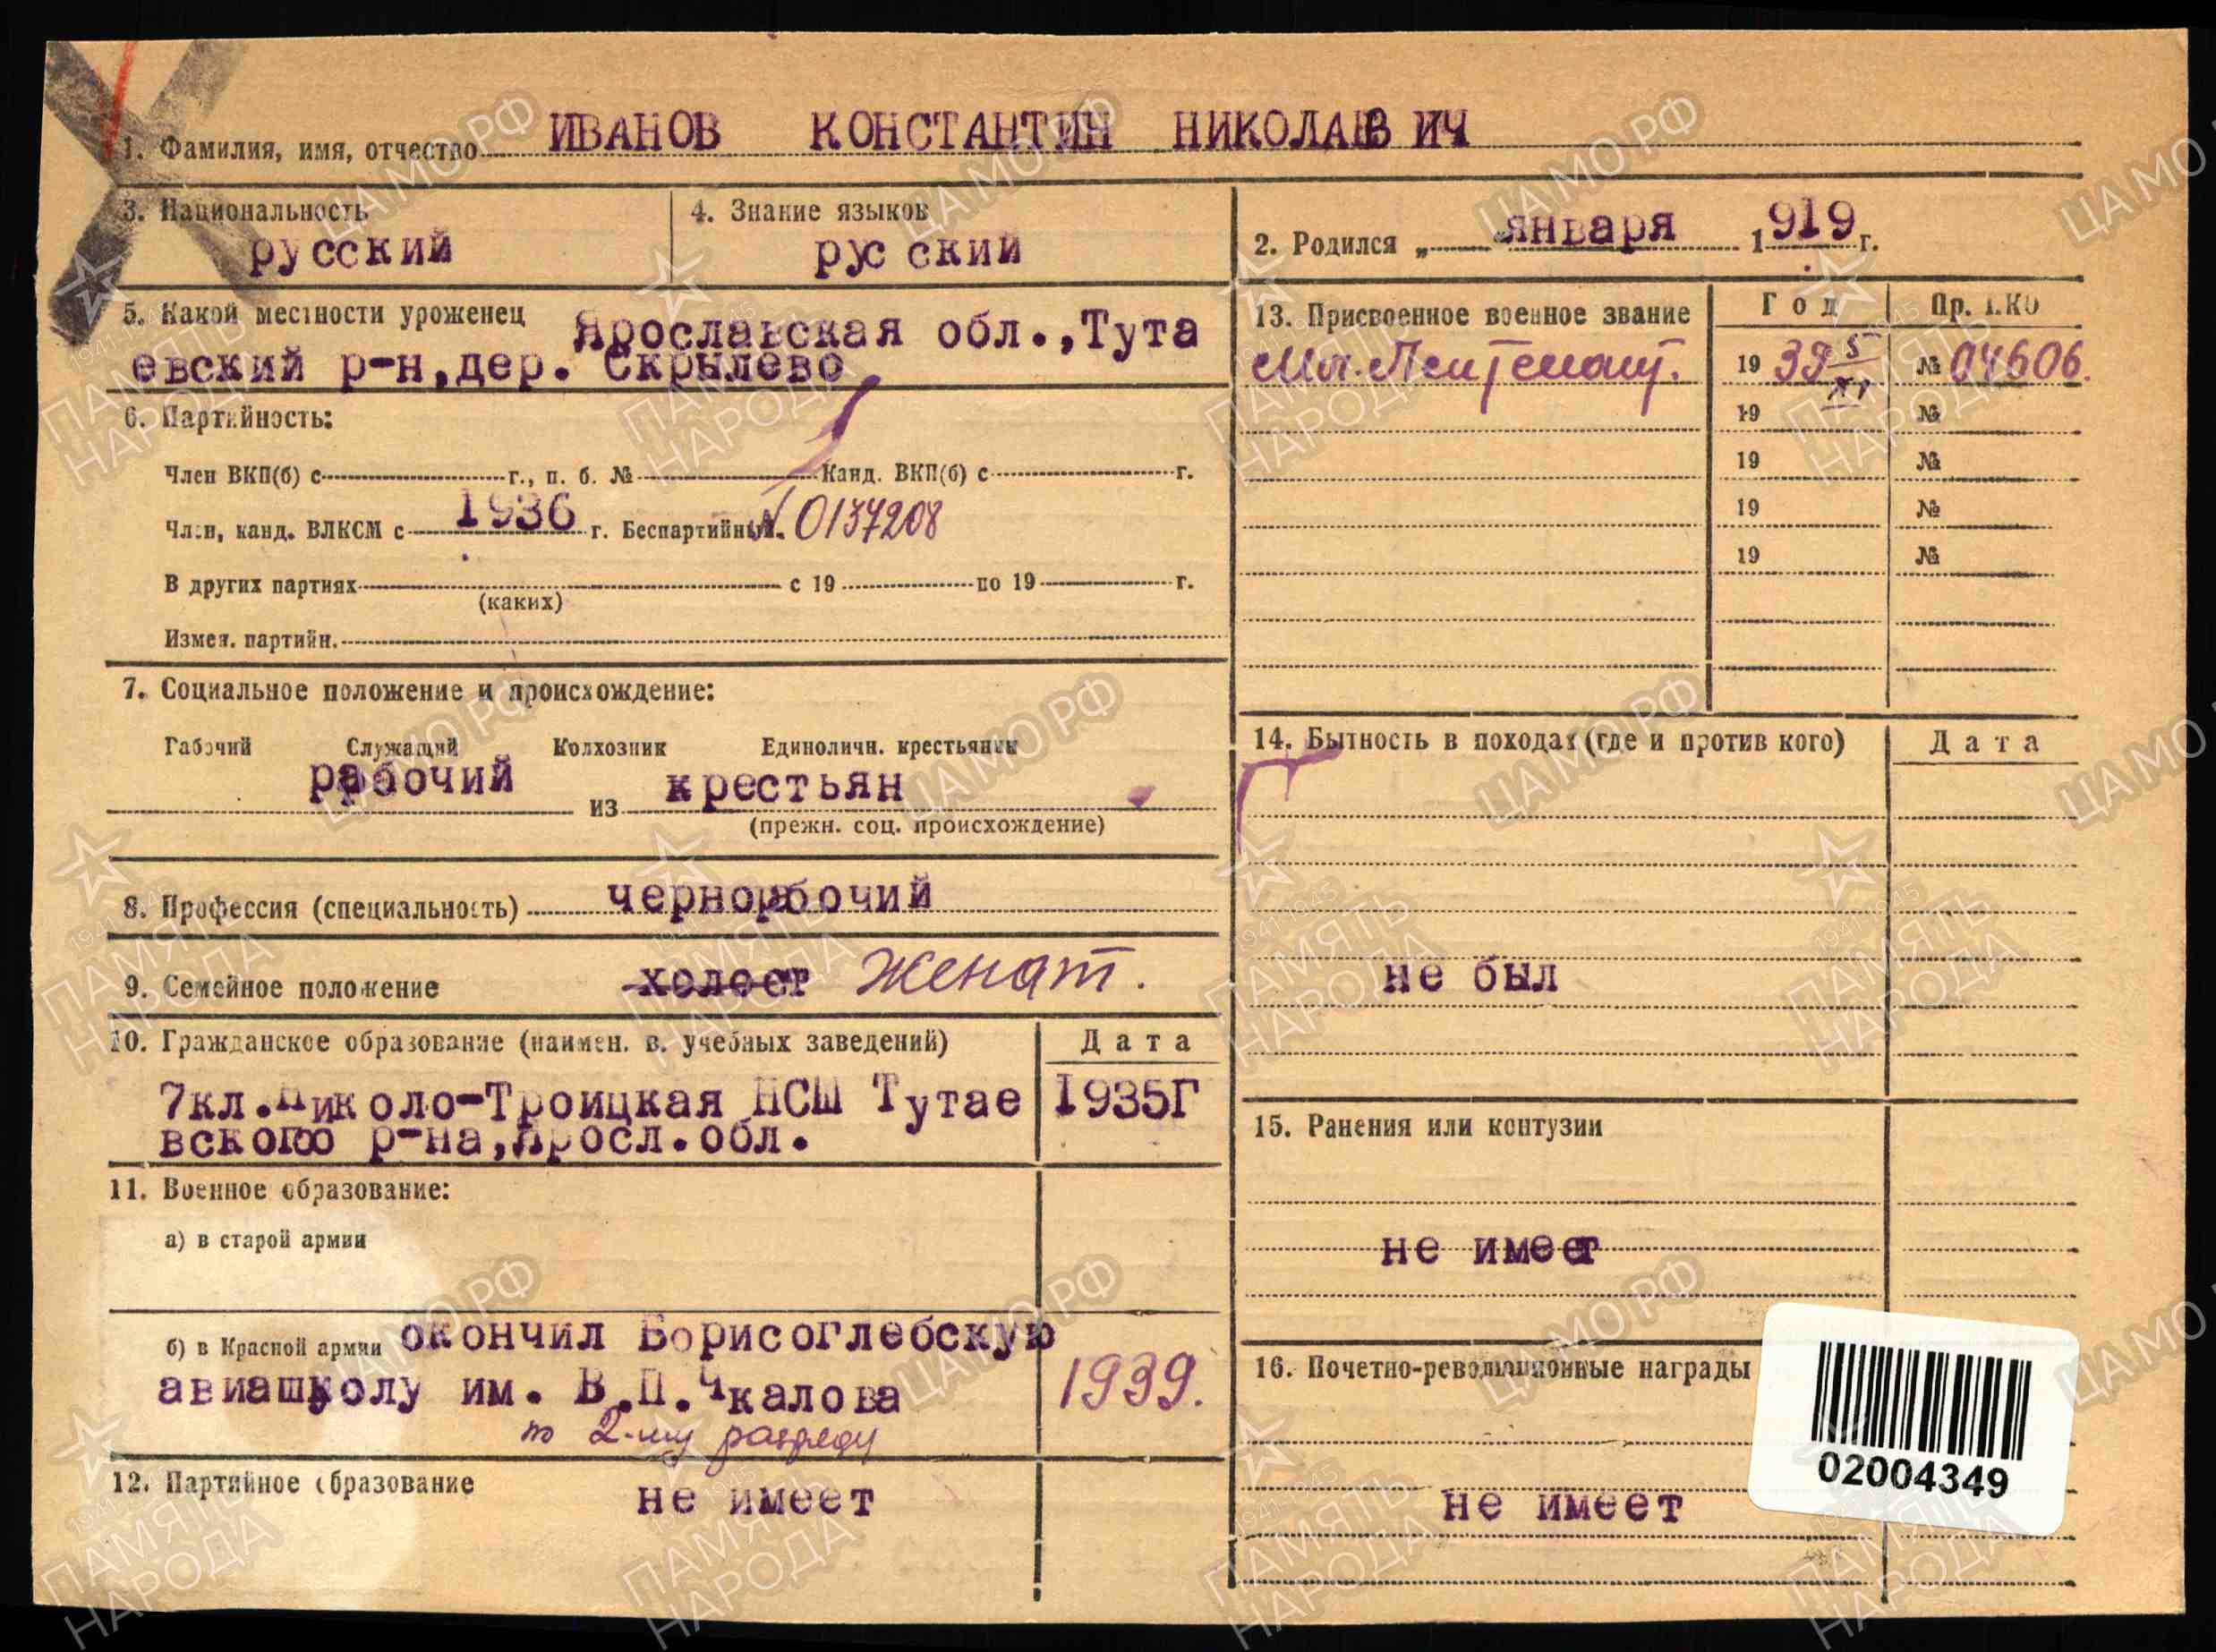 1. Фамилия, имя, отчество ИВАНОВ КОНСТАНТИН НИКОЛАЕВИЧ
3. Национальность
русский
4. Знание языков
русский
2. Родился „ “ января 1919 г.
5. Какой местности уроженец Ярославская обл.,Тута
евский р-н,дер. Скрылево
6. Партийность:
Член ВКП(б) с г., п. б. № Канд. ВКП(б) с г.
Член, канд. ВЛКСМ с 1936 г. Беспартийный. № 0137208
В других партиях с 19 по 19 г.
(каких)
Измен. партийн.
7. Социальное положение и происхождение:
Рабочий Служащий Колхозник Единоличн. крестьянин
рабочий из крестьян
(прежн. соц. происхождение)
8. Профессия (специальность) чернорабочий
9. Семейное положение холост Женат.
10. Гражданское образование (наимен. в. учебных заведений)
Дата
7кл.Николо-Троицкая НСШ Тутае
вского р-на,Яросл.обл.
1935Г
11. Военное образование:
а) в старой армии
б) в Красной армии окончил Борисоглебскую
авиашколу им. В.П.Чкалова
по 2-му разряду
1939.
12. Партийное образование
не имеет
13. Присвоенное военное звание Год Пр. НКО
Мл. Лейтенант. 19 39 5/XI № 04606.
19 №
19 №
19 №
19 №
14. Бытность в походах (где и против кого) Дата
не был
15. Ранения или контузии
не имеет
16. Почетно-революционные награды
не имеет
02004349
ЦАМО.РФ
ПАМЯТЬ
НАРОДА
1941-1945